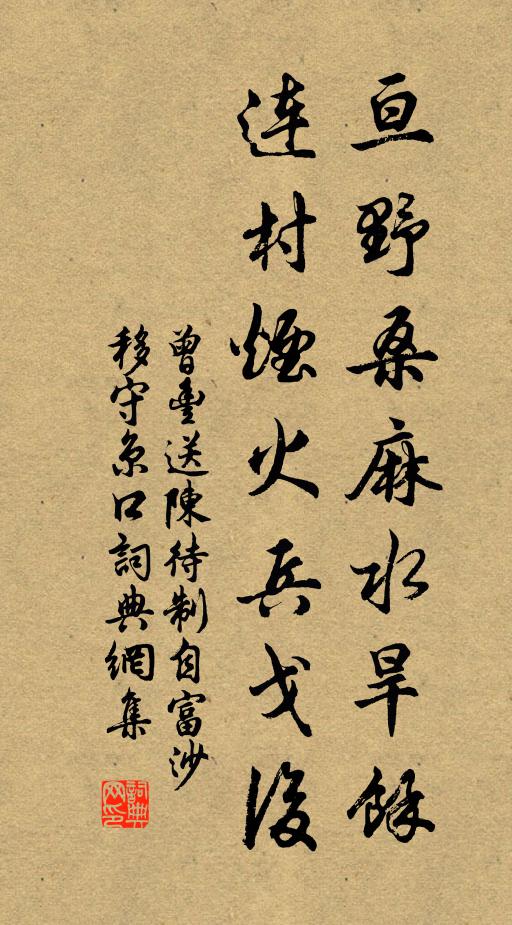 亘野桑麻水旱餘
連村煙火兵戈後
曾豐送陳待制自富沙
移守京口詞典網集
詞典网印